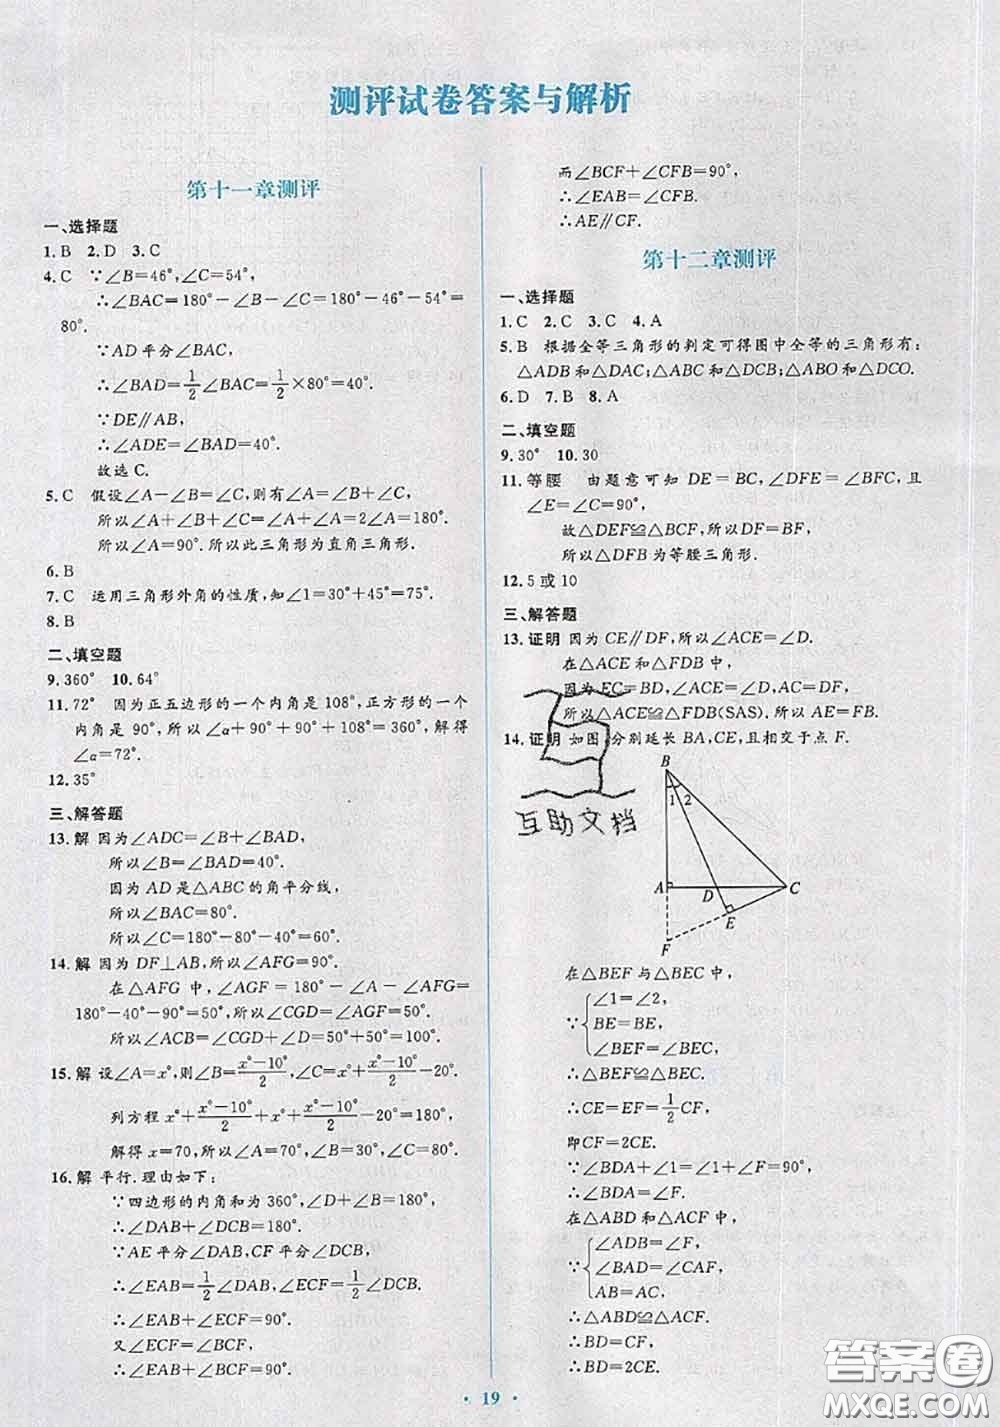 测评试卷答案与解析
第十一章测评
一、选择题
1.B 2.D 3.C
4.C ∵∠B=46°,∠C=54°,
∴∠BAC=180°-∠B-∠C=180°-46°-54°=
80°.
∵AD平分∠BAC,
∴∠BAD=1/2∠BAC=1/2×80°=40°.
∵DE∥AB,
∴∠ADE=∠BAD=40°.
故选C.
5.C 假设∠A-∠B=∠C,则有∠A=∠B+∠C,
所以∠A+∠B+∠C=∠A+∠A=2∠A=180°.
所以∠A=90°.所以此三角形为直角三角形.
6.B
7.C 运用三角形外角的性质,知∠1=30°+45°=75°.
8.B
二、填空题
9.360° 10.64°
11.72° 因为正五边形的一个内角是108°,正方形的一
个内角是90°,所以∠α+90°+90°+108°=360°,解得
∠α=72°.
12.35°
三、解答题
13.解 因为∠ADC=∠B+∠BAD,
所以∠B=∠BAD=40°.
因为AD是△ABC的角平分线,
所以∠BAC=80°.
所以∠C=180°-80°-40°=60°.
14.解 因为DF⊥AB,所以∠AFG=90°.
在△AFG中,∠AGF=180°-∠A-∠AFG=
180°-40°-90°=50°,所以∠CGD=∠AGF=50°.
所以∠ACB=∠CGD+∠D=50°+50°=100°.
15.解 设∠A=x°,则∠B=(x°-10°)/2,∠C=x°+(x°-10°)/2-20°.
列方程x°+(x°-10°)/2+x°+(x°-10°)/2-20°=180°,
解得x=70,所以∠A=70°,∠B=30°,∠C=80°.
16.解 平行.理由如下:
∵四边形的内角和为360°,∠D+∠B=180°,
∴∠DAB+∠DCB=180°.
∵AE平分∠DAB,CF平分∠DCB,
∴∠EAB=1/2∠DAB,∠ECF=1/2∠DCB.
∴∠EAB+∠ECF=90°.
又∠ECF=∠BCF,
∴∠EAB+∠BCF=90°.
而∠BCF+∠CFB=90°,
∴∠EAB=∠CFB.
∴AE∥CF.
第十二章测评
一、选择题
1.C 2.C 3.C 4.A
5.B 根据全等三角形的判定可得图中全等的三角形有:
△ADB和△DAC;△ABC和△DCB;△ABO和△DCO.
6.D 7.B 8.A
二、填空题
9.30° 10.30
11.等腰 由题意可知DE=BC,∠DFE=∠BFC,且
∠E=∠C=90°,
故△DEF≌△BCF,所以DF=BF,
所以△DFB为等腰三角形.
12.5或10
三、解答题
13.证明 因为CE∥DF,所以∠ACE=∠D.
在△ACE和△FDB中,
因为EC=BD,∠ACE=∠D,AC=DF,
所以△ACE≌△FDB(SAS).所以AE=FB.
14.证明 如图,分别延长BA,CE,且相交于点F.
B
1 2
A D C
E
F
互助文档
在△BEF与△BEC中,
∵{∠1=∠2,
BE=BE,
∠BEF=∠BEC,
∴△BEF≌△BEC.
∴CE=EF=1/2CF,
即CF=2CE.
∵∠BDA+∠1=∠1+∠F=90°,
∴∠BDA=∠F.
在△ABD和△ACF中,
∵{∠ADB=∠F,
∠BAD=∠CAF,
AB=AC,
∴△ABD≌△ACF.
∴BD=CF.
∴BD=2CE.
· 19 ·
答案圈
MXQE.COM